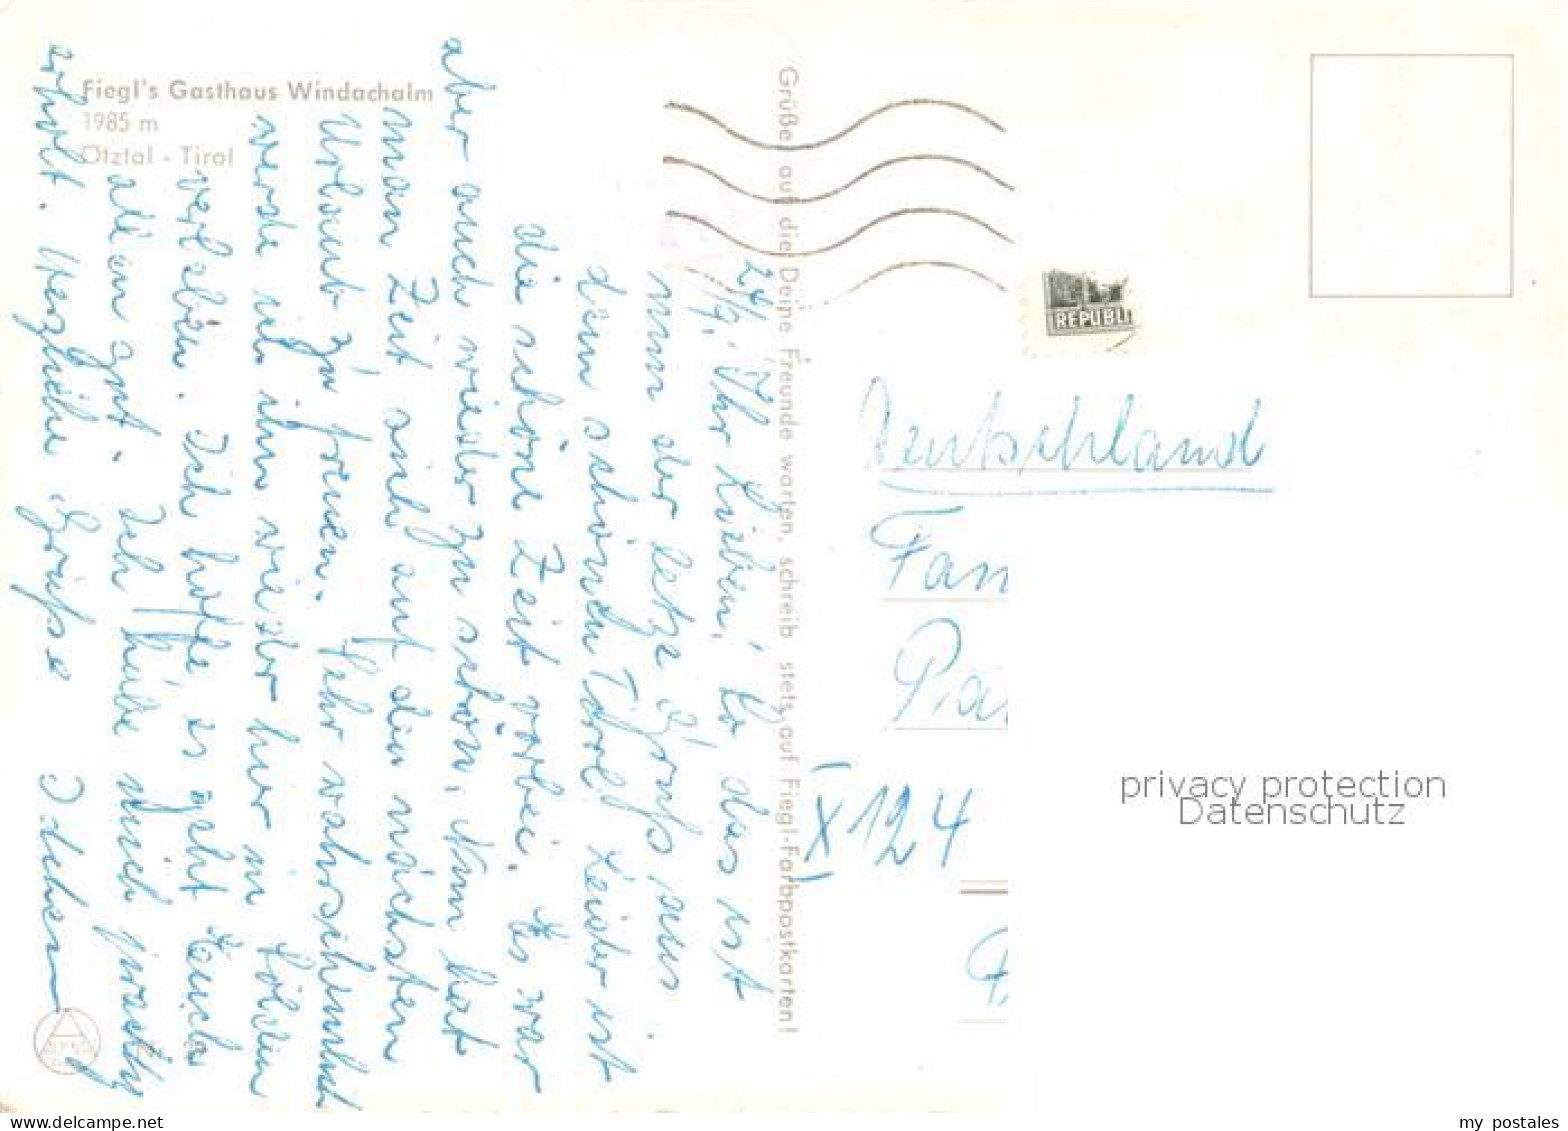 Fiegl's Gasthaus Windachalm
1985 m
Ötztal - Tirol
24/9. Ihr Lieben! So das ist
nun der letze Gruß aus
dem schönen Tirol. Leider ist
die schöne Zeit vorbei. Es war
aber auch wieder zu schön. Nun hat
man Zeit sich auf den nächsten
Urlaub zu freuen. Sehr wahrscheinlich
werde ich ihn wieder hier in Sölden
verleben. Ich hoffe es geht Euch
allen gut. Ich habe mich prächtig
erholt. Herzliche Grüsse
Grüße auf die Deine Freunde warten, schreib stets auf Fiegl-Farbpostkarten!
REPUBL
Deutschland
Fam
X 124
privacy protection
Datenschutz
my postales